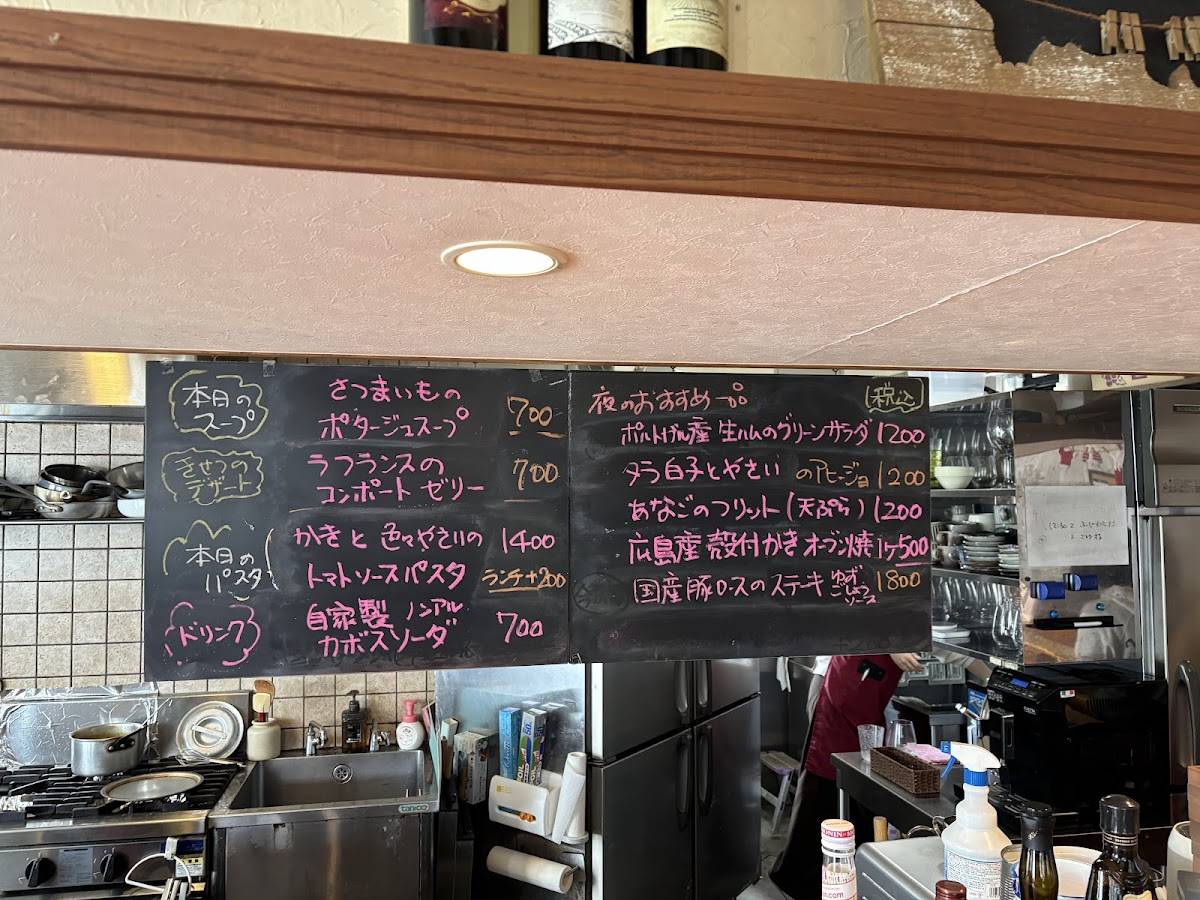 本日の
スープ
さつまいもの
ポタージュスープ
700
きせつの
デザート
ラフランスの
コンポート ゼリー
700
本日の
パスタ
かきと 色々やさいの
トマトソースパスタ
1400
ランチ+200
ドリンク
自家製 ノンアル
カボスソーダ
700
夜のおすすめ一品
税込
ポルトガル産 生ハムのグリーンサラダ 1200
タラ白子とやさい のアヒージョ 1200
あなごのフリット(天ぷら) 1200
広島産 殻付かき オーブン焼 1ヶ500
国産豚ロースのステーキ ゆずごしょうソース 1800
tanico